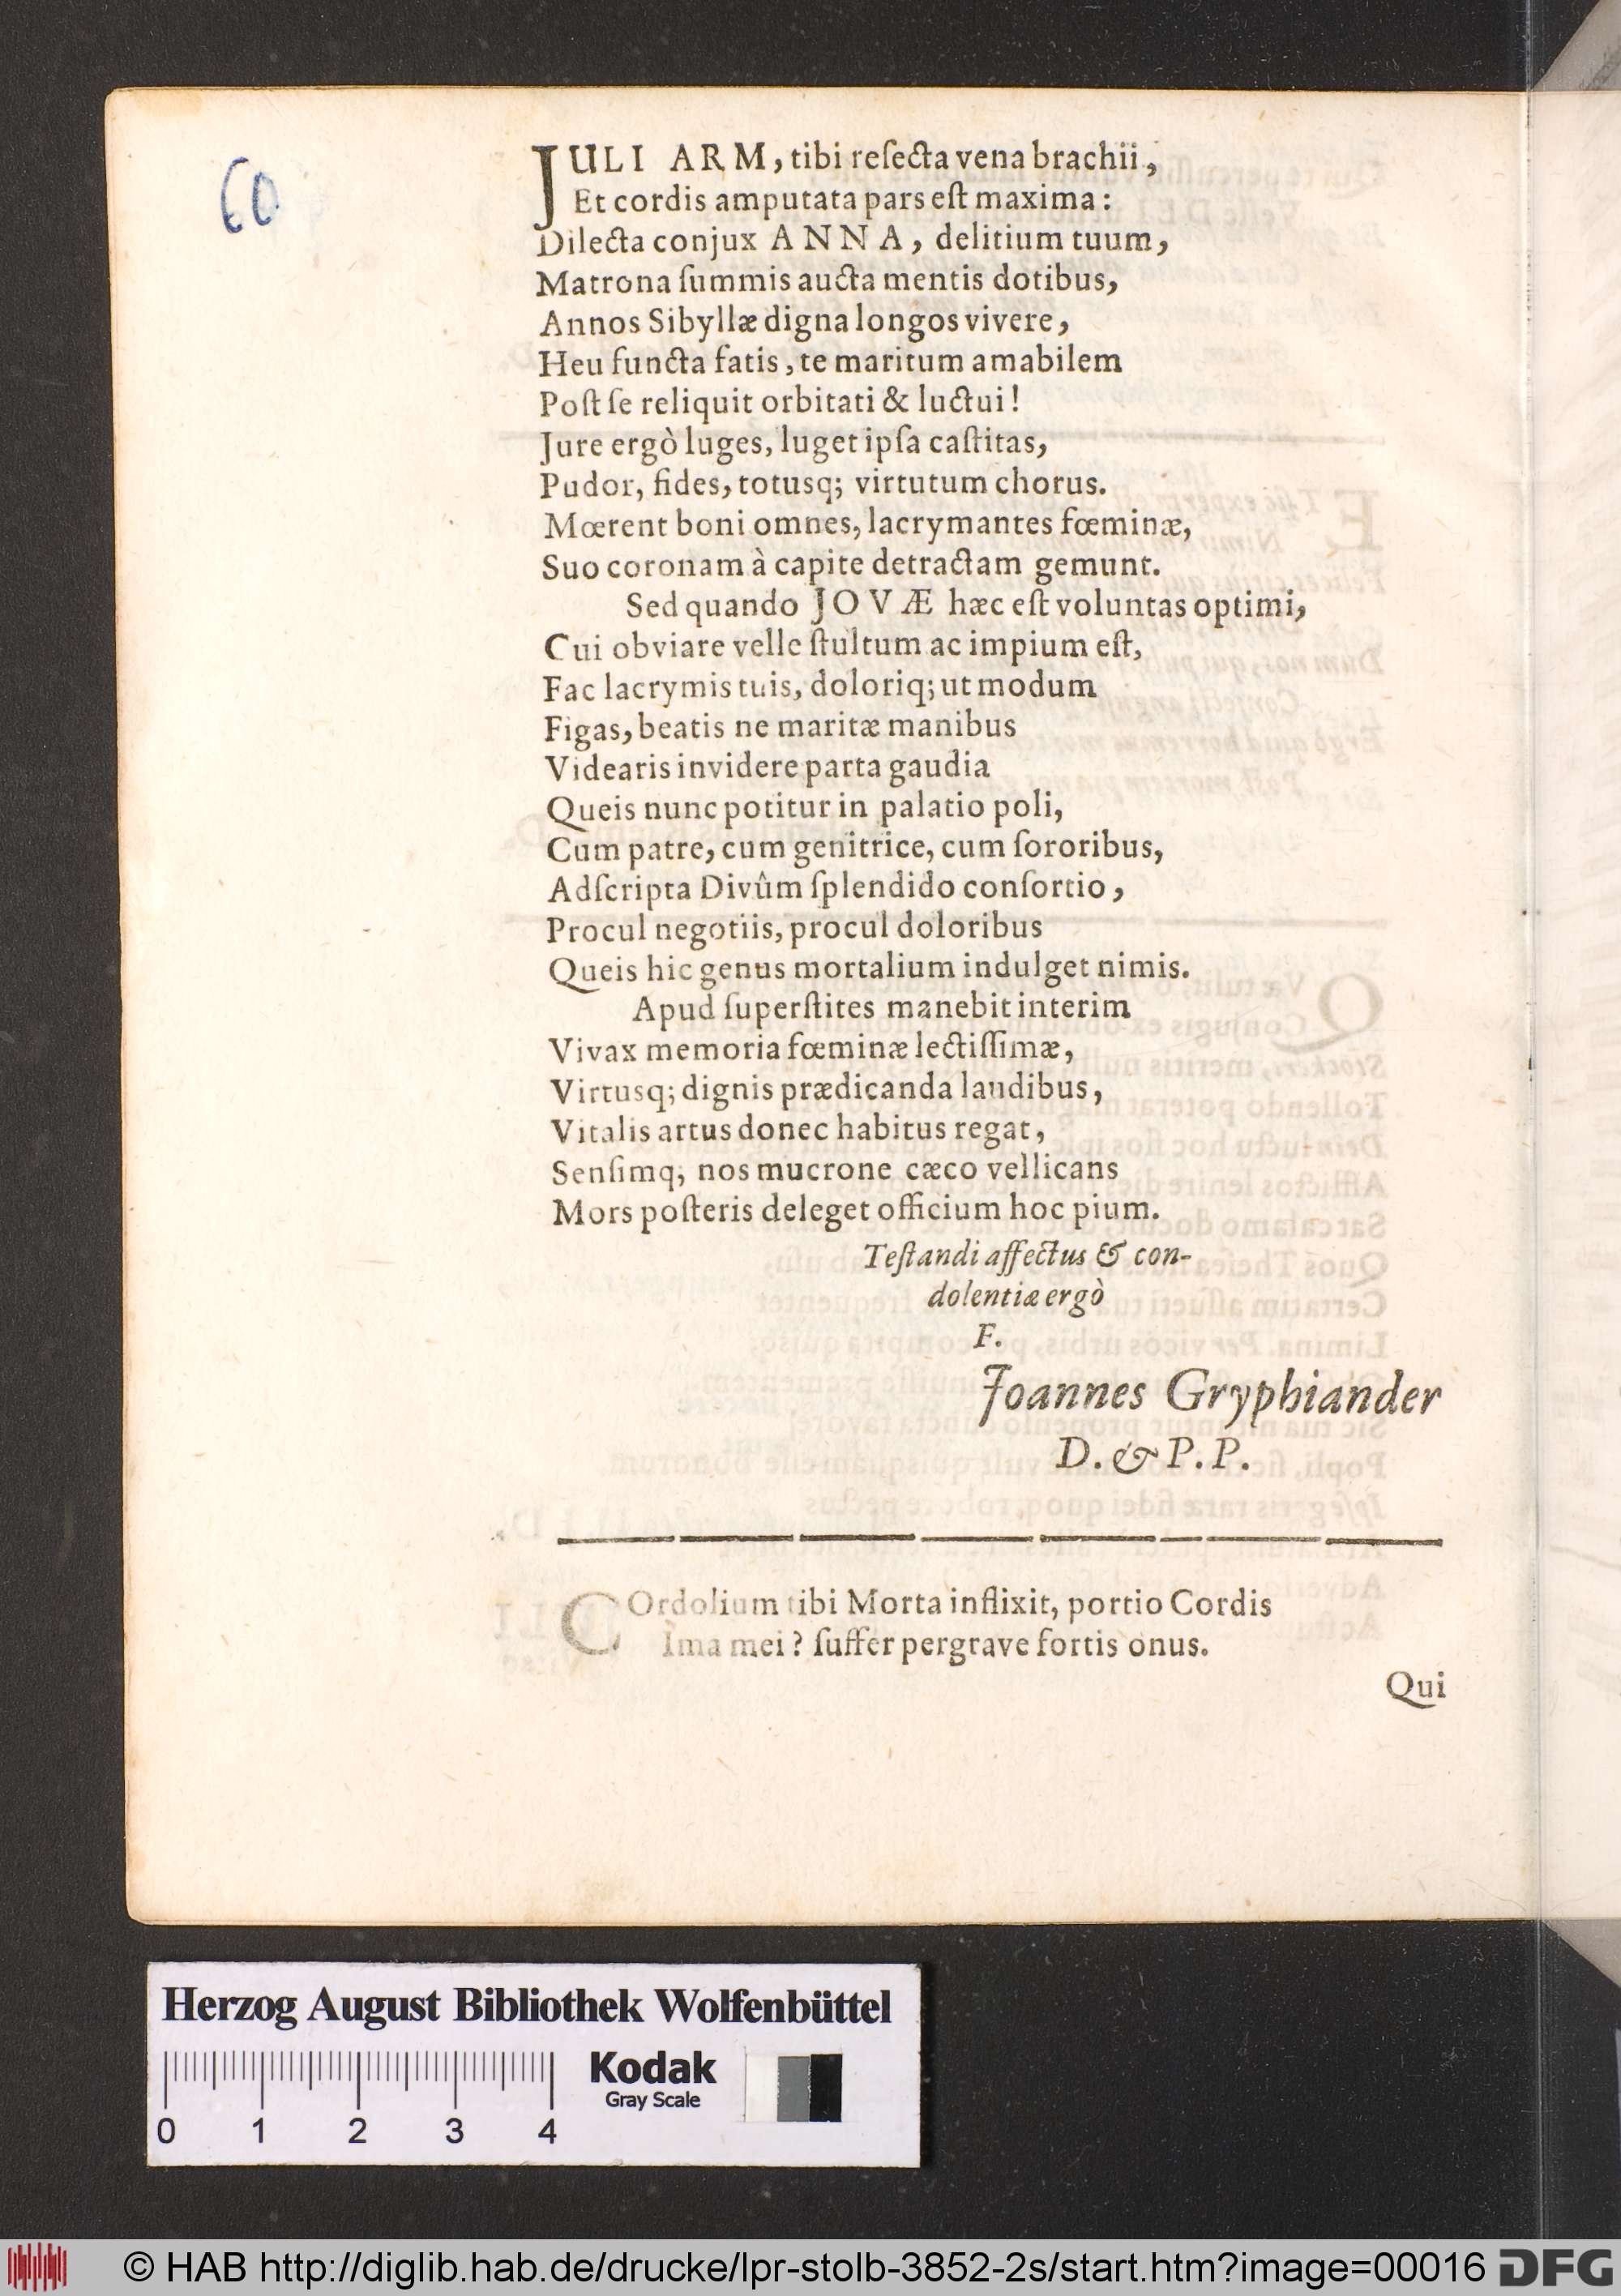 60
JULI ARM, tibi reſecta vena brachii,
Et cordis amputata pars eſt maxima:
Dilecta conjux ANNA, delitium tuum,
Matrona ſummis aucta mentis dotibus,
Annos Sibyllæ digna longos vivere,
Heu functa fatis, te maritum amabilem
Poſt ſe reliquit orbitati & luctui!
Jure ergò luges, luget ipſa caſtitas,
Pudor, fides, totusq; virtutum chorus.
Mœrent boni omnes, lacrymantes fœminæ,
Suo coronam à capite detractam gemunt.
Sed quando JOVÆ hæc eſt voluntas optimi,
Cui obviare velle ſtultum ac impium eſt,
Fac lacrymis tuis, doloriq; ut modum
Figas, beatis ne maritæ manibus
Videaris invidere parta gaudia
Queis nunc potitur in palatio poli,
Cum patre, cum genitrice, cum ſororibus,
Adſcripta Divûm ſplendido conſortio,
Procul negotiis, procul doloribus
Queis hic genus mortalium indulget nimis.
Apud ſuperſtites manebit interim
Vivax memoria fœminæ lectiſſimæ,
Virtusq; dignis prædicanda laudibus,
Vitalis artus donec habitus regat,
Senſimq; nos mucrone cæco vellicans
Mors poſteris deleget officium hoc pium.
Teſtandi affectus & con-
dolentiæ ergò
F.
Joannes Gryphiander
D. & P. P.
COrdolium tibi Morta inflixit, portio Cordis
Ima mei? ſuffer pergrave fortis onus.
Qui
Herzog August Bibliothek Wolfenbüttel
Kodak
Gray Scale
0 1 2 3 4
© HAB http://diglib.hab.de/drucke/lpr-stolb-3852-2s/start.htm?image=00016 DFG